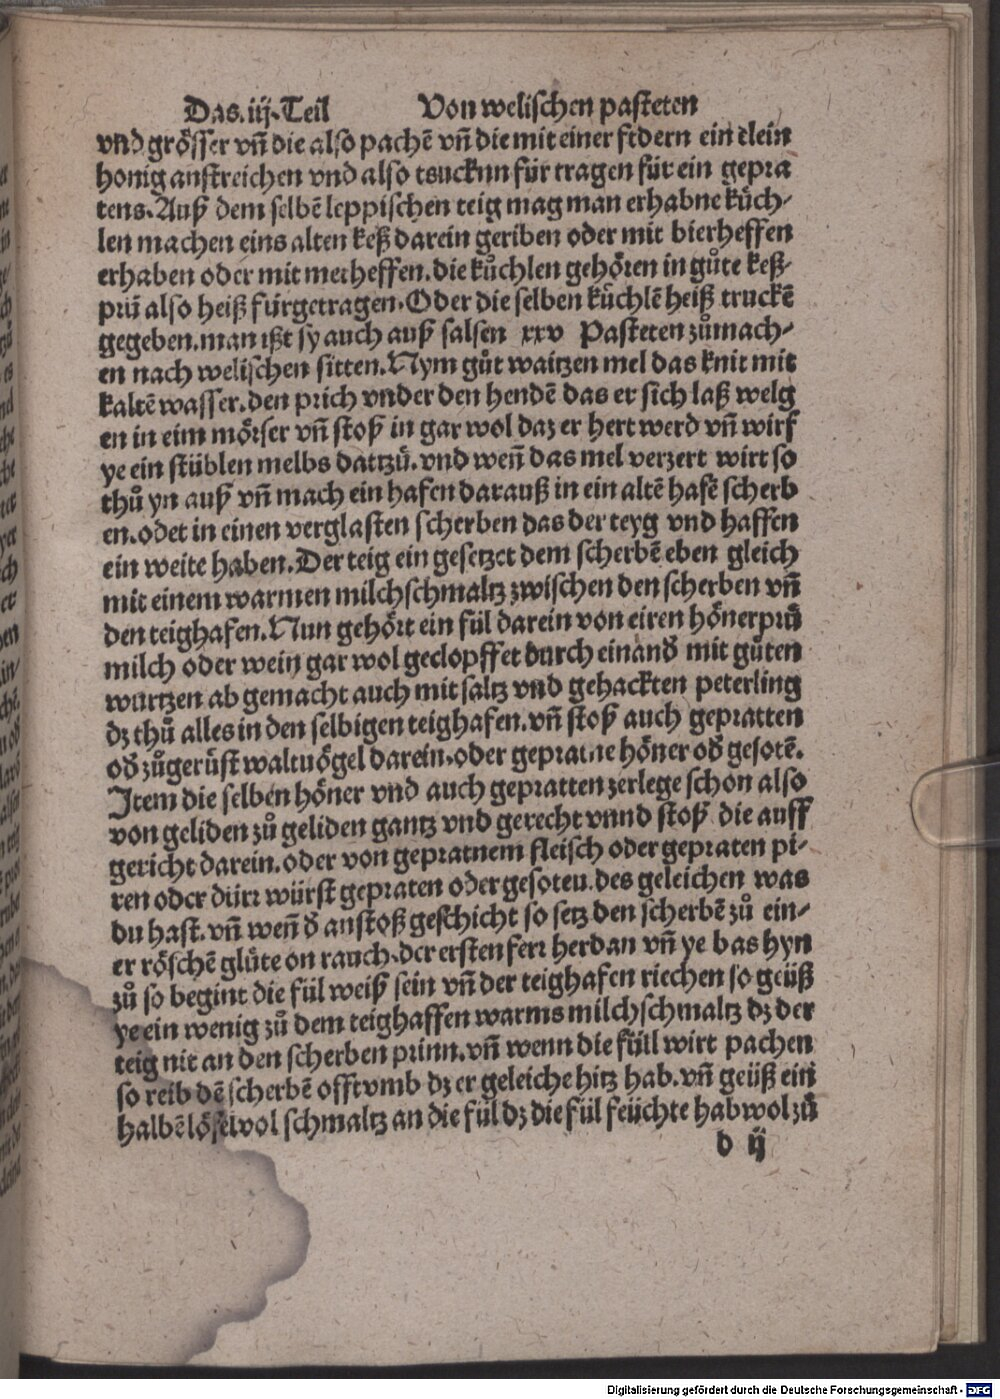 Das.iij.Teil Von welischen pasteten
vnd grösser vn̄ die also pachē vn̄ die mit einer federn ein clein
honig anstreichen vnd also tsucknn für tragen für ein gepra
tens. Auß dem selbē leppischen teig mag man erhabne kůch⸗
len machen eins alten keß darein geriben oder mit bierheffen
erhaben oder mit metheffen. die kůchlen gehören in gůte keß⸗
prü also heiß fürgetragen. Oder die selben kůchlē heiß truckē
gegeben. man ißt sy auch auß salsen xxv Pasteten zůmach⸗
en nach welischen sitten. Nym gůt waitzen mel das knit mit
kaltē wasser. den prich vnder den hendē das er sich laß welg
en in eim mörser vn̄ stoß in gar wol daz er hert werd vn̄ wirf
ye ein stüblen melbs dartzů. vnd wen̄ das mel verzert wirt so
thů yn auß vn̄ mach ein hafen darauß in ein altē hafē scherb
en. odet in einen verglasten scherben das der teyg vnd haffen
ein weite haben. Der teig ein gesetzet dem scherbē eben gleich
mit einem warmen milchschmaltz zwischen den scherben vn̄
den teighafen. Nun gehört ein fül darein von eiren hönerprü
milch oder wein gar wol geclopffet durch einand̄ mit gůten
wurtzen ab gemacht auch mit saltz vnd gehackten peterling
dz thů alles in den selbigen teighafen. vn̄ stoß auch gepratten
od̄ zůgerüst waltuögel darein. oder gepratne höner od̄ gesotē.
Item die selben höner vnd auch gepratten zerlege schon also
von geliden zů geliden gantz vnd gerecht vnnd stoß die auff
gericht darein. oder von gepratnem fleisch oder gepraten pi⸗
ren oder dürr würst gepraten oder gesoten. des geleichen was
du hast. vn̄ wen̄ d̄ anstoß geschicht so setz den scherbē zů ein⸗
er röschē glůte on rauch. der ersten ferr herdan vn̄ ye bas hyn
zů so begint die fül weiß sein vn̄ der teighafen riechen so geüß
ye ein wenig zů dem teighaffen warms milchschmaltz dz der
teig nit an den scherben prinn. vn̄ wenn die füll wirt pachen
so reib dē scherbē offt vmb dz er geleiche hitz hab. vn̄ geüß ein
halbē löffel vol schmaltz an die fül dz die fül feüchte hab wol zů
d ij
Digitalisierung gefördert durch die Deutsche Forschungsgemeinschaft - DFG